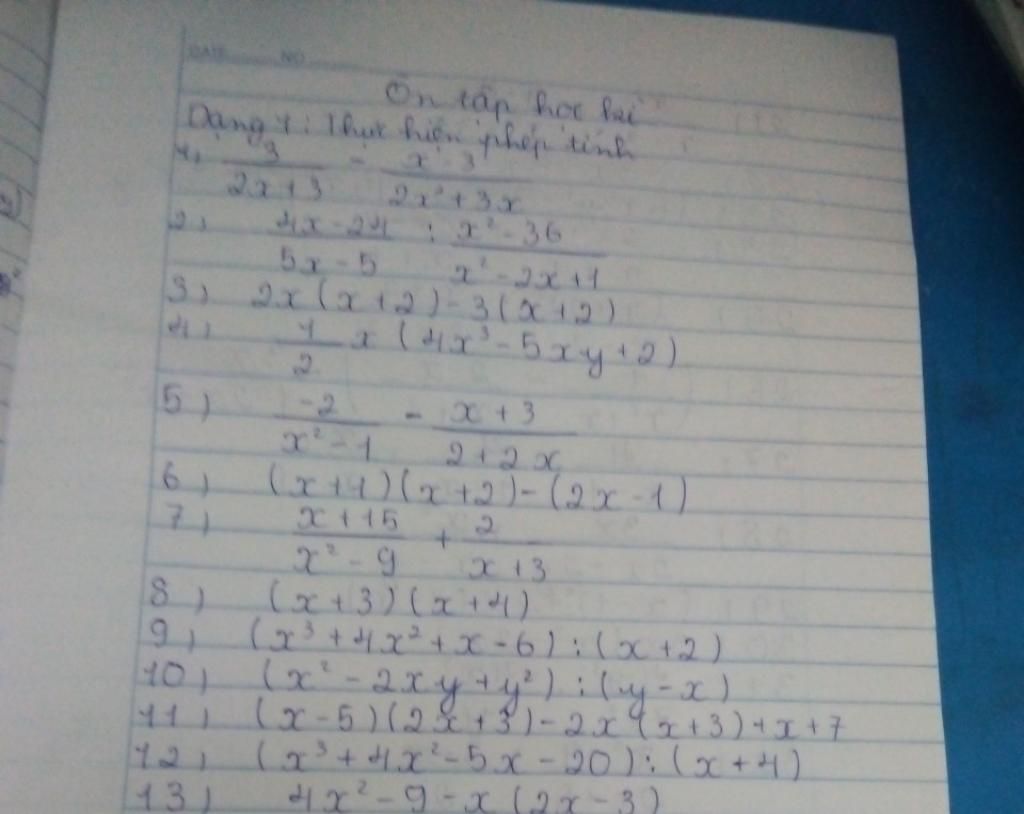 DATE NO
Ôn tập học kì
Dạng 1: Thực hiện phép tính
1) 3/(2x+3) - (x-3)/(2x²+3x)
2) (4x-24)/(5x-5) : (x²-36)/(x²-2x+1)
3) 2x(x+2)-3(x+2)
4) 1/2 x (4x³-5xy+2)
5) -2/(x²-1) - (x+3)/(2+2x)
6) (x+1)(x+2)-(2x-1)
7) (x+15)/(x²-9) + 2/(x+3)
8) (x+3)(x+4)
9) (x³+4x²+x-6):(x+2)
10) (x²-2xy+y²):(y-x)
11) (x-5)(2x+3)-2x(x+3)+x+7
12) (x³+4x²-5x-20):(x+4)
13) 4x²-9-x(2x-3)